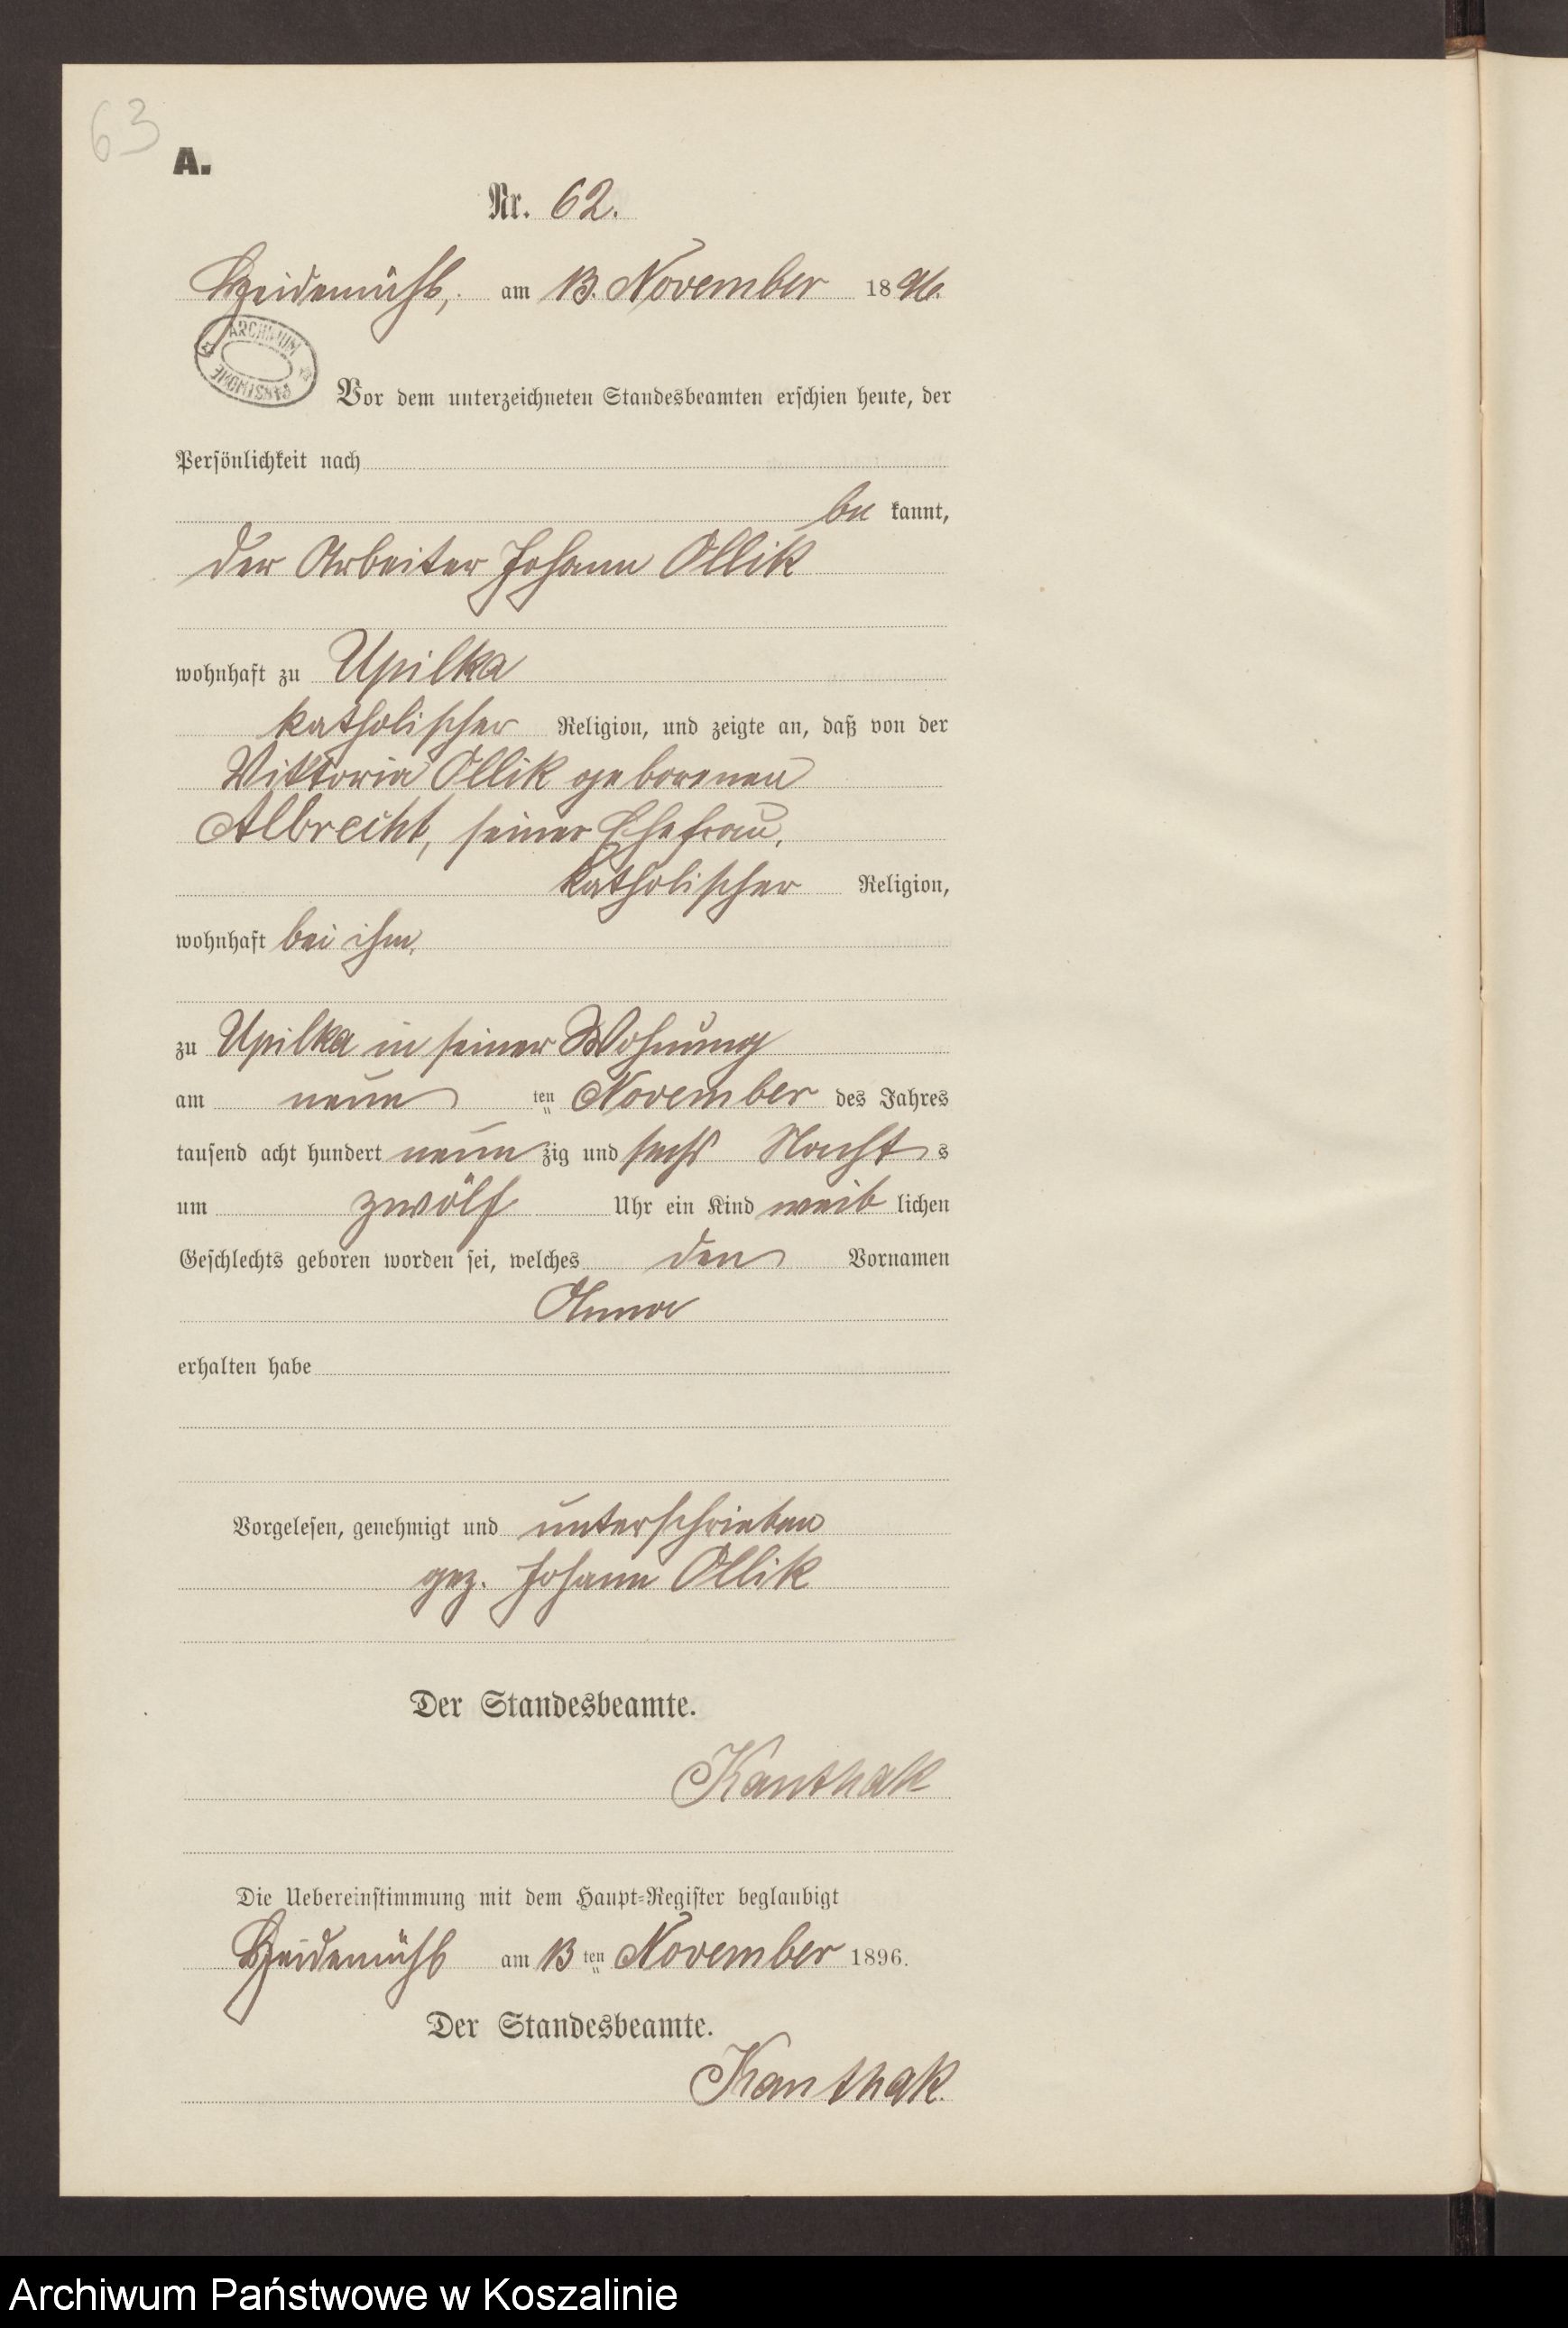 63
A.
Nr. 62.
Heidemühl, am 13. November 1896.
ARCHIWUM PAŃSTWOWE
Vor dem unterzeichneten Standesbeamten erschien heute, der
Persönlichkeit nach
be kannt,
der Arbeiter Johann Ollik
wohnhaft zu Upilka
katholischer Religion, und zeigte an, daß von der
Viktoria Ollik geborenen
Albrecht, seiner Ehefrau,
katholischer Religion,
wohnhaft bei ihm,
zu Upilka in seiner Wohnung
am neun ten November des Jahres
tausend acht hundert neun zig und sechs Nacht s
um zwölf Uhr ein Kind weib lichen
Geschlechts geboren worden sei, welches den Vornamen
Anna
erhalten habe
Vorgelesen, genehmigt und unterschrieben
gez. Johann Ollik
Der Standesbeamte.
Kanthak
Die Uebereinstimmung mit dem Haupt-Register beglaubigt
Heidemühl am 13 ten November 1896.
Der Standesbeamte.
Kanthak.
Archiwum Państwowe w Koszalinie